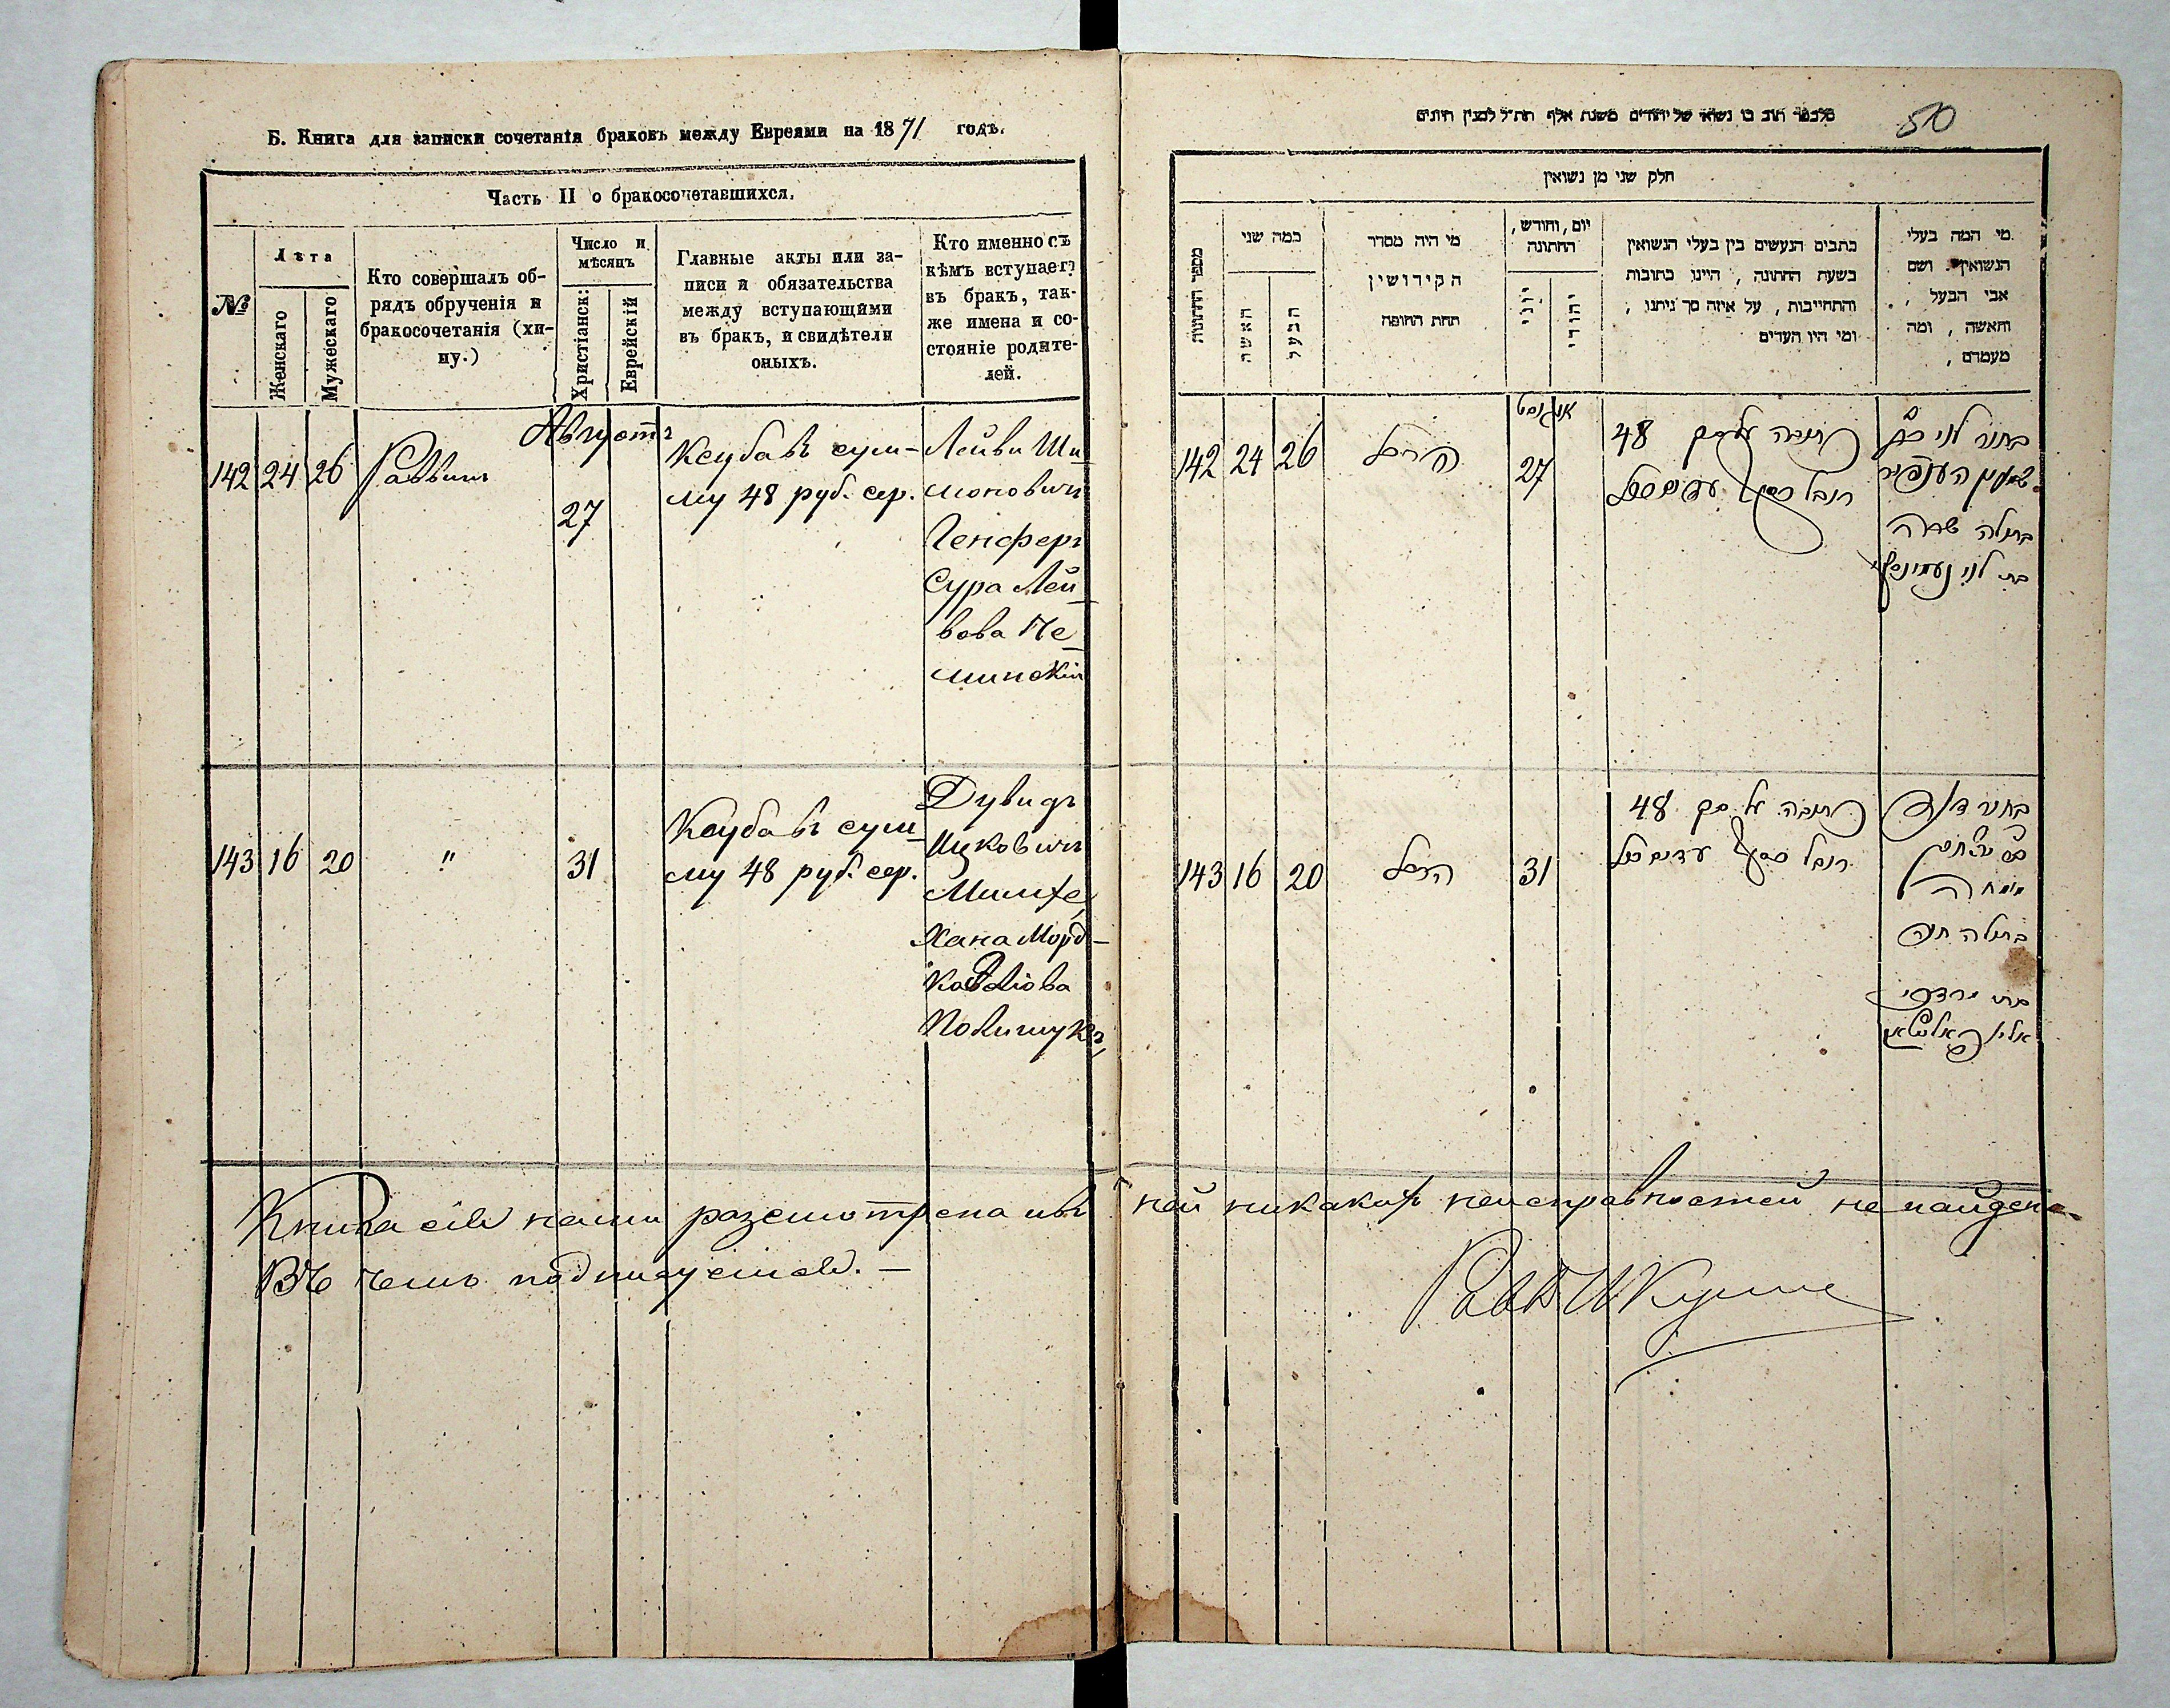 Б. Книга для записки сочетанія браковъ между Евреями на 1871 годъ.
Часть II о бракосочетавшихся.
№
Лѣта
Женскаго
Мужескаго
Кто совершалъ об-
рядъ обрученія и
бракосочетанія (хи-
ну.)
Число и
мѣсяцъ
Христіанск:
Еврейскій
Главные акты или за-
писи и обязательства
между вступающими
въ бракъ, и свидѣтели
оныхъ.
Кто именно съ
кѣмъ вступаетъ
въ бракъ, так-
же имена и со-
стояніе родите-
лей.
Августъ
142 24 26 Раввинъ 27
Ксуба въ сум-
му 48 руб. сер.
Лейви Ши-
моновичъ
Генсферъ
Сура Лей-
вова Не-
минскій
143 16 20 " 31
Ксуба въ сум-
му 48 руб. сер.
Дувидъ
Ицковичъ
Хана Морд-
Полищукъ
Книга сія нами разсмотрена и въ ней никакихъ неисправностей не найдено.
Въ чемъ подписуемся. —
50
חלק שני מן נשואין
מספר החתונות
כמה שני
האשה
הבעל
מי היה מסדר
הקידושין
תחת החופה
יום, וחודש,
החתונה
יוני
יהודי
כתבים הנעשים בין בעלי הנשואין
בשעת החתונה, היינו כתובות
והתחייבות, על איזה סך ניתנו,
ומי היו העדים
מי המה בעלי
הנשואין. ושם
אבי הבעל,
והאשה, ומה
מעמדם,
אוגוסט
142 24 26 27
כתובה על סך 48
רובל כסף
בחור לוי
בתולה שרה
בת לוי
143 16 20 31
כתובה על סך 48
רובל כסף
בחור דוד
בתולה חנה
בת מרדכי